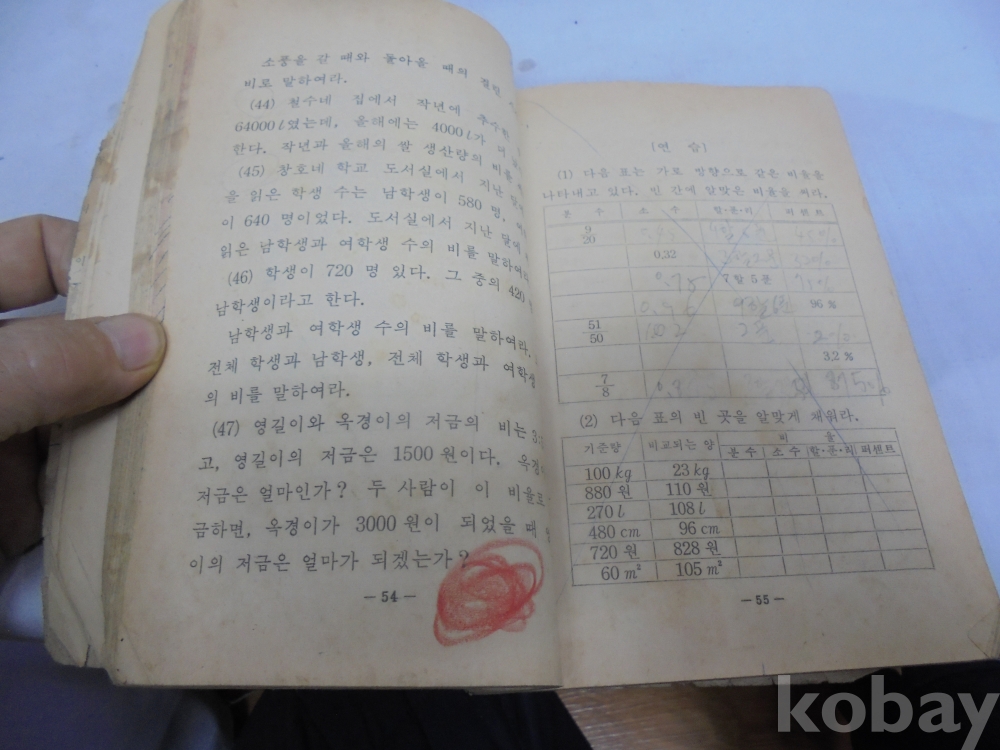 소풍을 갈 때와 돌아올 때의 걸린
비로 말하여라.
(44) 철수네 집에서 작년에 추수한
64000l였는데, 올해에는 4000l가 더
한다. 작년과 올해의 쌀 생산량의 비를
(45) 창호네 학교 도서실에서 지난 달에
을 읽은 학생 수는 남학생이 580 명,
이 640 명이었다. 도서실에서 지난 달에
읽은 남학생과 여학생 수의 비를 말하여라.
(46) 학생이 720 명 있다. 그 중의 420
남학생이라고 한다.
남학생과 여학생 수의 비를 말하여라.
전체 학생과 남학생, 전체 학생과 여학생
의 비를 말하여라.
(47) 영길이와 옥경이의 저금의 비는 3:
고, 영길이의 저금은 1500 원이다.
저금은 얼마인가? 두 사람이 이 비율로
금하면, 옥경이가 3000 원이 되었을 때
이의 저금은 얼마가 되겠는가?
— 54 —
[연 습]
(1) 다음 표는 가로 방향으로 같은 비율을
나타내고 있다. 빈 간에 알맞은 비율을 써라.
분 수 소 수 할·푼·리 퍼센트
9/20
0.32
0.75 7 할 5 푼
96 %
51/50
3.2 %
7/8
(2) 다음 표의 빈 곳을 알맞게 채워라.
기준량 비교되는 양 비 율
분 수 소 수 할·푼·리 퍼센트
100 kg 23 kg
880 원 110 원
270 l 108 l
480 cm 96 cm
720 원 828 원
60 m² 105 m²
— 55 —
kobay